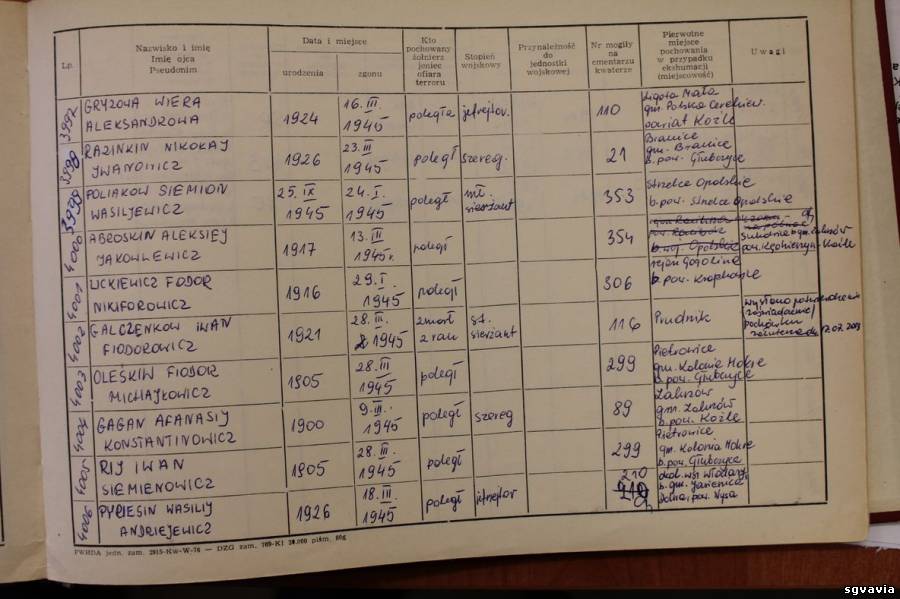 Lp.
Nazwisko i imię
Imię ojca
Pseudonim
Data i miejsce
urodzenia
zgonu
Kto
pochowany
żołnierz
jeniec
ofiara
terroru
Stopień
wojskowy
Przynależność
do
jednostki
wojskowej
Nr mogiły
na
cmentarzu
kwaterze
Pierwotne
miejsce
pochowania
w przypadku
ekshumacji
(miejscowość)
Uwagi
3997
GRYZOWA WIERA
ALEKSANDROWA
1924
16. III.
1945
poległa
jefrejtov.
110
Ligota Mała
gm. Polska Cerekiew.
powiat Koźle
3998
RAZINKIN NIKOŁAY
JWANOWICZ
1926
23. III
1945
poległ
szereg.
21
Branice
gm. Branice
b. pow. Głubczyce
3999
POLIAKOW SIEMION
WASILJEWICZ
25. IX
1945
24. I.
1945
poległ
mł.
sierżant
353
Strzelce Opolskie
b. pow. Strzelce Opolskie
4000
ABROSKIN ALEKSIEJ
JAKOWLEWICZ
1917
13. III
1945r.
poległ
354
4001
UCKIEWICZ FODOR
NIKIFOROWICZ
1916
29. I.
1945
poległ
306
rejon Gogolina
b. pow. Krapkowice
4002
GALCZENKOW IWAN
FIODOROWICZ
1921
28. III.
1945
zmarł
z ran
st.
sierżant
116
Prudnik
4003
OLESKIW FIODOR
MICHAJŁOWICZ
1905
28. III
1945
poległ
299
Pietrowice
gm. Kolonia Mokre
b. pow. Głubczyce
4004
GAGAN AFANASIY
KONSTANTINOWICZ
1900
9. III.
1945
poległ
szereg
89
Zalszów
gm. Zalszów
b. pow. Koźle
4005
RIJ IWAN
SIEMIENOWICZ
1905
28. III.
1945
poległ
299
Pietrowice
gm. Kolonia Mokre
b. pow. Głubczyce
4006
PYRIESIN WASILIY
ANDRIEJEWICZ
1926
18. III.
1945
poległ
jefrejtov
210
pow. Nysa
PWHDA jedn. zam. 2915-Kw-W-76 — DZG zam. 769-KI 20.000 piśm. 80g
sgvavia